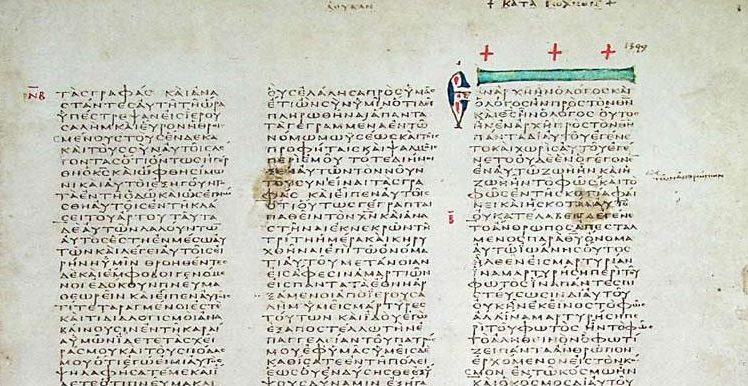 ΛΟΥΚΑΝ
† ΚΑΤΑ ΙΩΑΝΝΗΝ †
1349
Ν̅Β̅
ΤΑϹΓΡΑΦΑϹ ΚΑΙΑΝΑ
ϹΤΑΝΤΕϹΑΥΤΗΤΗΩΡΑ
ΥΠΕϹΤΡΕΨΑΝΕΙϹΙΕΡΟΥ
ϹΑΛΗΜΚΑΙΕΥΡΟΝΗΘΡΟΙϹ
ΜΕΝΟΥϹΤΟΥϹΕΝΔΕΚΑ
ΚΑΙΤΟΥϹϹΥΝΑΥΤΟΙϹΛΕ
ΓΟΝΤΑϹΟΤΙΟΝΤΩϹΗΓΕΡ
ΘΗΟΚ̅Ϲ̅ΚΑΙΩΦΘΗϹΙΜΩ
ΝΙΚΑΙΑΥΤΟΙΕΞΗΓΟΥΝΤΟ
ΤΑΕΝΤΗΟΔΩΚΑΙΩϹΕΓΝΩ
ϹΘΗΑΥΤΟΙϹΕΝΤΗΚΛΑ
ϹΕΙΤΟΥΑΡΤΟΥΤΑΥΤΑ
ΔΕΑΥΤΩΝΛΑΛΟΥΝΤΩ̅
ΑΥΤΟϹΕϹΤΗΕΝΜΕϹΩΑΥ
ΤΩΝΚΑΙΛΕΓΕΙΑΥΤΟΙϹΕΙ
ΡΗΝΗΥΜΙΝ ΘΡΟΗΘΕΝΤΕϹ
ΔΕΚΑΙΕΜΦΟΒΟΙΓΕΝΟΜΕ
ΝΟΙΕΔΟΚΟΥΝΠΝΕΥΜΑ
ΘΕΩΡΕΙΝ ΚΑΙΕΙΠΕΝΑΥΤΟΙϹ
ΤΙΤΕΤΑΡΑΓΜΕΝΟΙΕϹΤΕ
ΚΑΙΤΙΔΙΑΛΟΓΙϹΜΟΙΑΝΑ
ΒΑΙΝΟΥϹΙΝΕΝΤΗΚΑΡΔΙΑ
ΥΜΩΝΙΔΕΤΕΤΑϹΧΕΙ
ΡΑϹΜΟΥΚΑΙΤΟΥϹΠΟΔΑϹ
ΜΟΥΟΤΙΕΓΩΕΙΜΙΑΥΤΟϹ
ΨΗΛΑΦΗϹΑΤΕΜΕΚΑΙ
ΙΔΕΤΕΟΤΙΠΝΕΥΜΑΚΑΙ
ΟΥϹΕΛΑΛΗϹΑΠΡΟϹΥΜΑϹ
ΕΤΙΩΝϹΥΝΥΜΙΝΟΤΙΔΕΙ
ΠΛΗΡΩΘΗΝΑΙΑΠΑΝΤΑ
ΤΑΓΕΓΡΑΜΜΕΝΑΕΝΤΩ
ΝΟΜΩΜΩΥϹΕΩϹΚΑΙΤΟΙϹ
ΠΡΟΦΗΤΑΙϹΚΑΙΨΑΛΜΟΙϹ
ΠΕΡΙΕΜΟΥ ΤΟΤΕΔΙΗΝΟΙ
ΞΕΝΑΥΤΩΝΤΟΝΝΟΥΝ
ΤΟΥϹΥΝΙΕΝΑΙΤΑϹΓΡΑ
ΦΑϹ ΚΑΙΕΙΠΕΝΑΥΤΟΙϹ
ΟΤΙΟΥΤΩϹΓΕΓΡΑΠΤΑΙ
ΠΑΘΕΙΝΤΟΝΧ̅Ν̅ΚΑΙΑΝΑ
ϹΤΗΝΑΙΕΚΝΕΚΡΩΝΤΗ
ΤΡΙΤΗΗΜΕΡΑΚΑΙΚΗΡΥ
ΧΘΗΝΑΙΕΠΙΤΩΟΝΟΜΑ
ΤΙΑΥΤΟΥΜΕΤΑΝΟΙΑΝ
ΕΙϹΑΦΕϹΙΝΑΜΑΡΤΙΩΝ
ΕΙϹΠΑΝΤΑΤΑΕΘΝΗΑΡ
ΞΑΜΕΝΟΙΑΠΟΙΕΡΟΥϹΑ
ΛΗΜ ΥΜΕΙϹΜΑΡΤΥΡΕϹ
ΤΟΥΤΩΝ ΚΑΙΙΔΟΥΕΓΩ
ΕΞΑΠΟϹΤΕΛΛΩΤΗΝΕ
ΠΑΓΓΕΛΙΑΝΤΟΥΠΑΤΡΟϹ
ΜΟΥΕΦΥΜΑϹΥΜΕΙϹΔΕ
ΚΑΘΙϹΑΤΕΕΝΤΗΠΟΛΕΙ
ΕΩϹΟΥΕΝΔΥϹΗϹΘΕΕΞΥ
ΨΟΥϹΔΥΝΑΜΙΝ ΕΞΗΓΑ
Α̅
ΕΝΑΡΧΗΗΝΟΛΟΓΟϹΚΑΙ
ΟΛΟΓΟϹΗΝΠΡΟϹΤΟΝΘ̅Ν̅
ΚΑΙΘ̅Ϲ̅ΗΝΟΛΟΓΟϹ ΟΥΤΟϹ
ΗΝΕΝΑΡΧΗΠΡΟϹΤΟΝΘ̅Ν̅
ΠΑΝΤΑΔΙΑΥΤΟΥΕΓΕΝΕ
ΤΟΚΑΙΧΩΡΙϹΑΥΤΟΥΕΓΕ
ΝΕΤΟΟΥΔΕΕΝΟΓΕΓΟΝΕΝ
ΕΝΑΥΤΩΖΩΗΗΝΚΑΙΗ
ΖΩΗΗΝΤΟΦΩϹΚΑΙΤΟ
ΦΩϹΕΝΤΗϹΚΟΤΙΑΦΑΙ
ΝΕΙΚΑΙΗϹΚΟΤΙΑΑΥΤΟ
ΟΥΚΑΤΕΛΑΒΕΝ ΕΓΕΝΕ
ΤΩΝΑΝΘΡΩΠΩΝ
Β̅
ΤΟΑΝΘΡΩΠΟϹΑΠΕϹΤΑΛ
ΜΕΝΟϹΠΑΡΑΘ̅Υ̅ΟΝΟΜΑ
ΑΥΤΩΙΩΑΝΗϹΟΥΤΟϹ
ΗΛΘΕΝΕΙϹΜΑΡΤΥΡΙΑΝ
ΙΝΑΜΑΡΤΥΡΗϹΗΠΕΡΙΤΟΥ
ΦΩΤΟϹΙΝΑΠΑΝΤΕϹΠΙ
ϹΤΕΥϹΩϹΙΝΔΙΑΥΤΟΥ
ΟΥΚΗΝΕΚΕΙΝΟϹΤΟΦΩϹ
ΑΛΛΙΝΑΜΑΡΤΥΡΗϹΗΠΕ
ΡΙΤΟΥΦΩΤΟϹ ΗΝΤΟΦΩϹ
ΤΟΑΛΗΘΙΝΟΝΟΦΩΤΙ
ΖΕΙΠΑΝΤΑΑΝΘΡΩΠΟΝ
ΕΡΧΟΜΕΝΟΝΕΙϹΤΟΝΚΟ
ϹΜΟΝ ΕΝΤΩΚΟϹΜΩΗΝ
ΚΑΙΟΚΟϹΜΟϹΔΙΑΥΤΟΥ